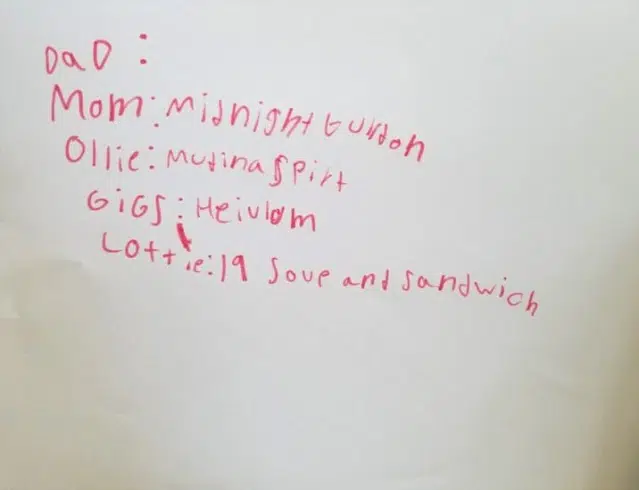 DaD:
Mom: Midnight Gurdon
Ollie: Mutina Spirt
GiGS: Heivlom
Lottie: 19 Soup and Sandwich